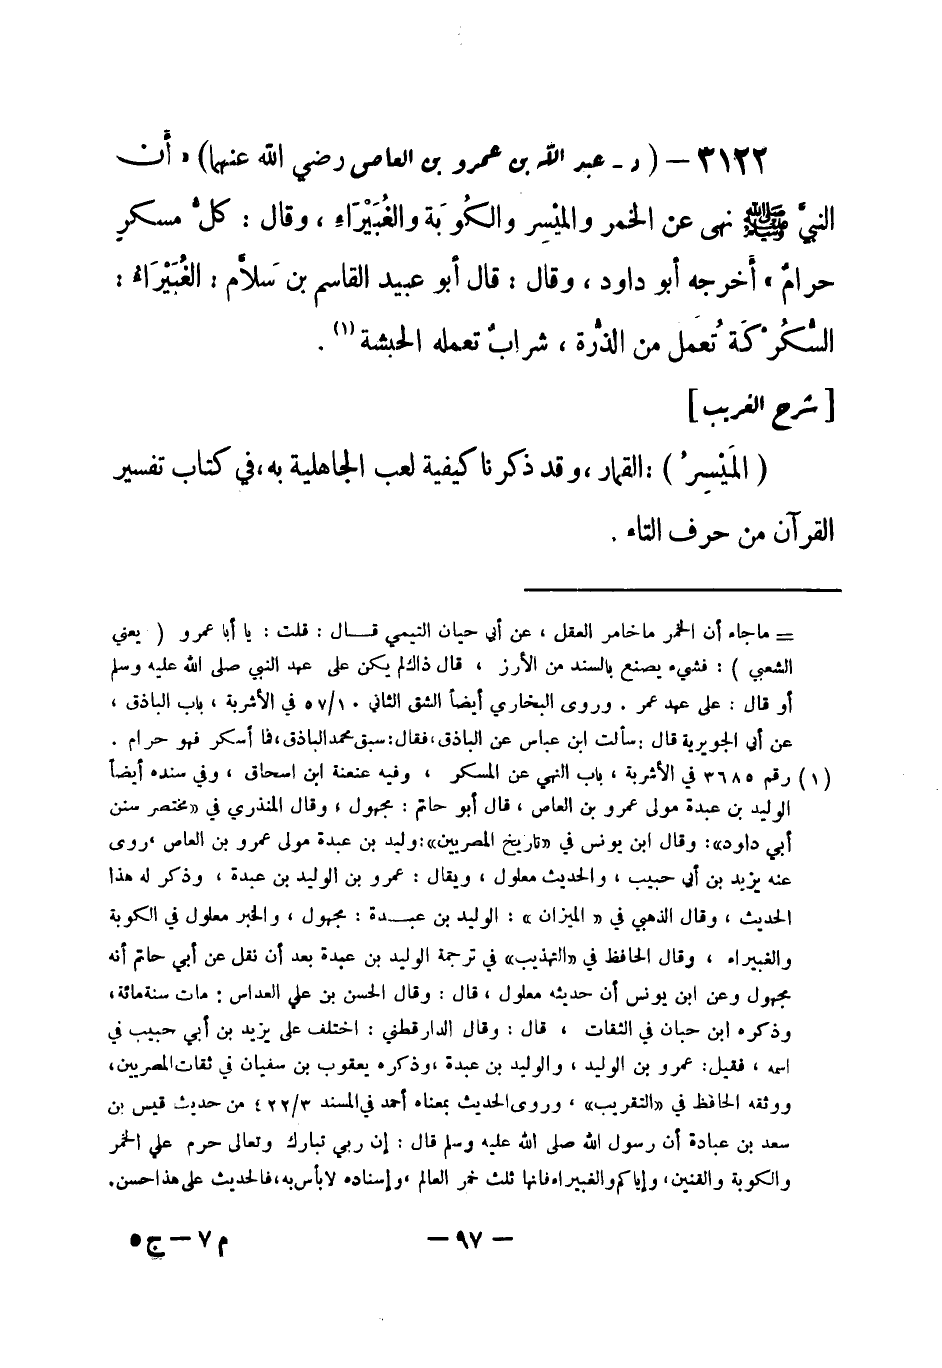 ٣١٢٢ – ( د ـ عبد الله بن عمرو بن العاص رضي الله عنهما) « أن
النبيَّ ﷺ نهى عن الخمر والمَيْسِر والكُوبَة والغُبَيْرَاءِ ، وقال : كلُّ مسكرٍ
حرامٌ » أخرجه أبو داود ، وقال : قال أبو عبيد القاسم بن سَلاَّم : الغُبَيْرَاءُ :
السُّكُرْكَة تُعمَل من الذُّرة ، شرابٌ تعمله الحبشة (١) .
[ شرح الغريب ]
( المَيْسِرُ ) : القمار ، وقد ذكرنا كيفية لعب الجاهلية به ، في كتاب تفسير
القرآن من حرف التاء .
= ماجاء أن الخمر ماخامر العقل ، عن أبي حيان التيمي قـــال : قلت : يا أبا عمرو ( يعني
الشعبي ) : فشيء يصنع بالسند من الأرز ، قال ذاك لم يكن على عهد النبي صلى الله عليه وسلم
أو قال : على عهد عمر . وروى البخاري أيضاً الشق الثاني ٥٧/١٠ في الأشربة ، باب الباذق ،
عن أبي الجويرية قال : سألت ابن عباس عن الباذق ، فقال : سبق محمد الباذق ، فما أسكر فهو حرام .
(١) رقم ٣٦٨٥ في الأشربة ، باب النهي عن المسكر ، وفيه عنعنة ابن اسحاق ، وفي سنده أيضاً
الوليد بن عبدة مولى عمرو بن العاص ، قال أبو حاتم : مجهول ، وقال المنذري في «مختصر سنن
أبي داود» : وقال ابن يونس في «تاريخ المصريين» : وليد بن عبدة مولى عمرو بن العاص ، روى
عنه يزيد بن أبي حبيب ، والحديث معلول ، ويقال : عمرو بن الوليد بن عبدة ، وذكر له هذا
الحديث ، وقال الذهبي في « الميزان » : الوليد بن عبــدة : مجهول ، والخبر معلول في الكوبة
والغبيراء ، وقال الحافظ في «التهذيب» في ترجمة الوليد بن عبدة بعد أن نقل عن أبي حاتم أنه
مجهول وعن ابن يونس أن حديثه معلول ، قال : وقال الحسن بن علي العداس : مات سنة مائة ،
وذكره ابن حبان في الثقات ، قال : وقال الدارقطني : اختلف على يزيد بن أبي حبيب في
اسمه ، فقيل : عمرو بن الوليد ، والوليد بن عبدة ، وذكره يعقوب بن سفيان في ثقات المصريين ،
ووثقه الحافظ في «التقريب» ، وروى الحديث بمعناه أحمد في المسند ٤٢٢/٣ من حديث قيس بن
سعد بن عبادة أن رسول الله صلى الله عليه وسلم قال : إن ربي تبارك وتعالى حرم علي الخمر
والكوبة والقنين ، وإياكم والغبيراء فانها ثلث خمر العالم ، وإسناده لا بأس به ، فالحديث على هذا حسن .
– ٩٧ –
م ٧ – ج ٥